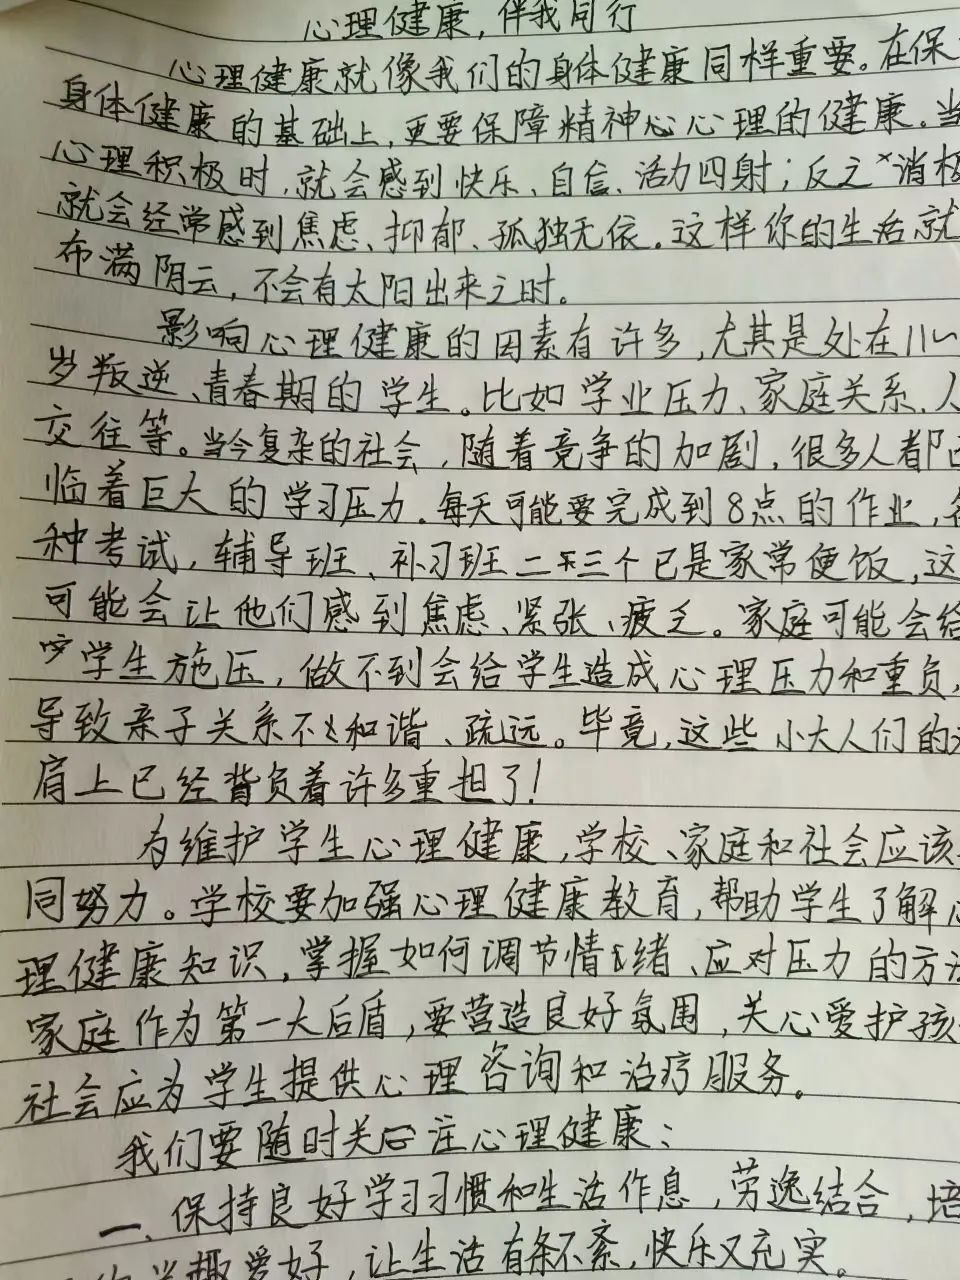 心理健康,伴我同行
心理健康就像我们的身体健康同样重要。在保
身体健康的基础上,更要保障精神心心理的健康。当
心理积极时,就会感到快乐、自信、活力四射;反之消极
就会经常感到焦虑、抑郁、孤独无依。这样你的生活就
布满阴云,不会有太阳出来之时。
影响心理健康的因素有许多,尤其是处在11~
岁叛逆、青春期的学生。比如学业压力、家庭关系、人
交往等。当今复杂的社会,随着竞争的加剧,很多人都
临着巨大的学习压力。每天可能要完成到8点的作业,各
种考试,辅导班、补习班二三个已是家常便饭,这
可能会让他们感到焦虑、紧张、疲乏。家庭可能会给
学生施压,做不到会给学生造成心理压力和重负,
导致亲子关系不和谐、疏远。毕竟,这些小大人们的
肩上已经背负着许多重担了!
为维护学生心理健康,学校、家庭和社会应该
同努力。学校要加强心理健康教育,帮助学生了解心
理健康知识,掌握如何调节情绪、应对压力的方法
家庭作为第一大后盾,要营造良好氛围,关心爱护孩
社会应为学生提供心理咨询和治疗服务。
我们要随时关注心理健康:
一、保持良好学习习惯和生活作息,劳逸结合,培
兴趣爱好,让生活有条不紊,快乐又充实。